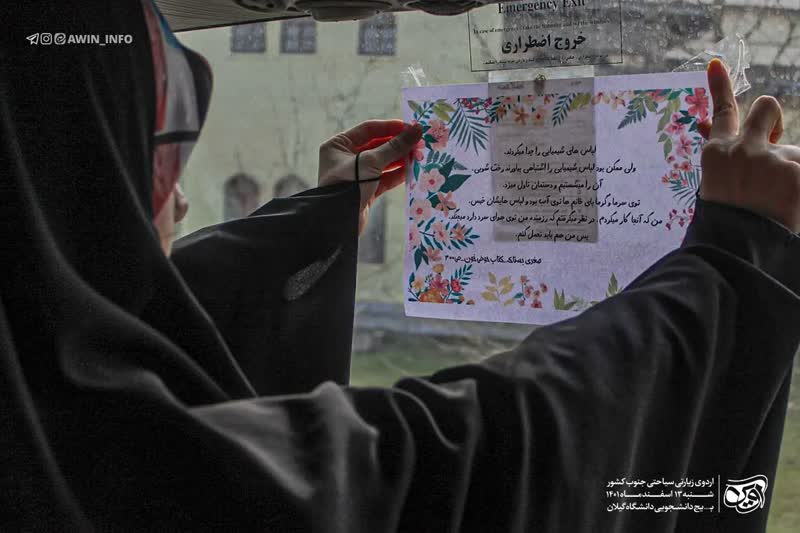 AWIN_INFO
Emergency Exit
خروج اضطراری
لباس های شیمیایی را جدا میکردند.
ولی ممکن بود لباس شیمیایی را اشتباهی بیاورند رخت شویی.
آن را میشستیم و دستمان تاول میزد.
توی سرما و گرما پای خانم ها توی آب بود و لباس هایشان خیس.
من که آنجا کار میکردم، در نظر میگرفتم که رزمنده من توی هوای سرد دارد میجنگد
پس من هم باید تحمل کنم.
اردوی زیارتی سیاحتی جنوب کشور
شنبه ۱۳ اسفند ماه ۱۴۰۱
بسیج دانشجویی دانشگاه گیلان